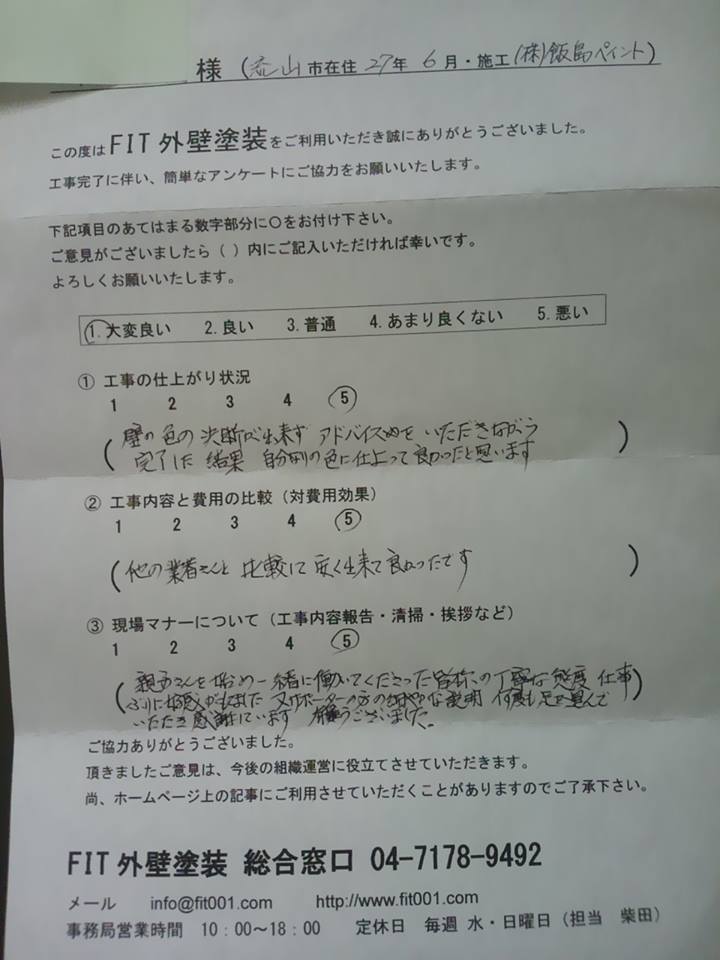 様 (流山市在住 27年 6月・施工 (株)飯島ペイント)
この度はFIT外壁塗装をご利用いただき誠にありがとうございました。
工事完了に伴い、簡単なアンケートにご協力をお願いいたします。
下記項目のあてはまる数字部分に〇をお付け下さい。
ご意見がございましたら（ ）内にご記入いただければ幸いです。
よろしくお願いいたします。
1.大変良い 2.良い 3.普通 4.あまり良くない 5.悪い
① 工事の仕上がり状況
1 2 3 4 5
(壁の色の決断が出来ず アドバイスをいただきながら
完了した結果 自分好みの色に仕上って良かったと思います)
② 工事内容と費用の比較（対費用効果）
1 2 3 4 5
(他の業者さんと比較して安く出来て良かったです)
③ 現場マナーについて（工事内容報告・清掃・挨拶など）
1 2 3 4 5
(親方さんを始め一緒に働いてくださった皆様の丁寧な態度 仕事
ぶりに好感がもてました 又サポーターの方の細やかな説明 何度も足を運んで
いただき感謝しています 有難うございました。)
ご協力ありがとうございました。
頂きましたご意見は、今後の組織運営に役立てさせていただきます。
尚、ホームページ上の記事にご利用させていただくことがありますのでご了承下さい。
FIT外壁塗装 総合窓口 04-7178-9492
メール info@fit001.com http://www.fit001.com
事務局営業時間 10：00～18：00 定休日 毎週 水・日曜日（担当 柴田）